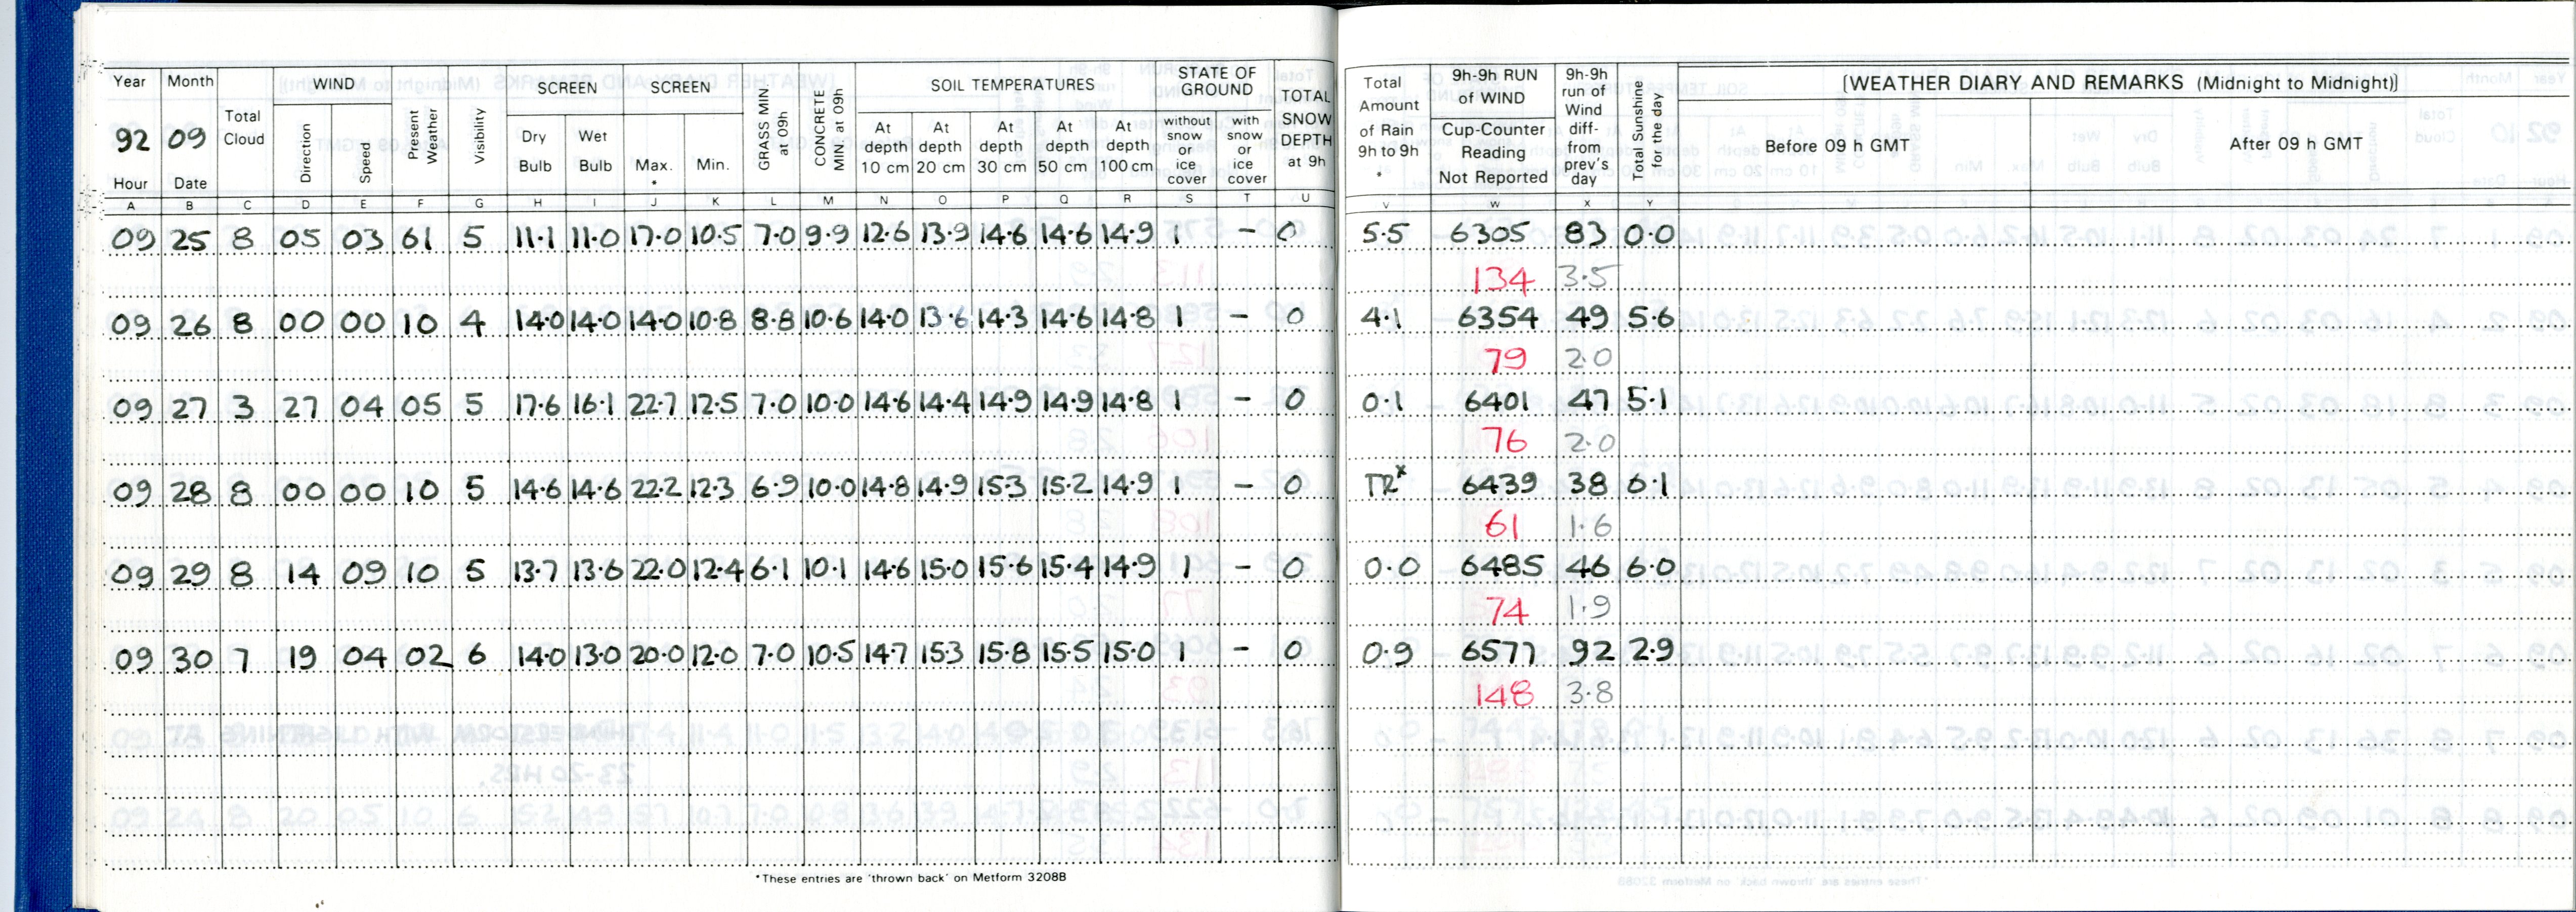 Year Month Total Cloud WIND Present Weather Visibility SCREEN SCREEN GRASS MIN. at 09h CONCRETE MIN at 09h SOIL TEMPERATURES STATE OF GROUND TOTAL SNOW DEPTH at 9h Total Amount of Rain 9h to 9h * 9h-9h RUN of WIND 9h-9h run of Wind diff- from prev's day Total Sunshine for the day [WEATHER DIARY AND REMARKS (Midnight to Midnight)]
92 09 Direction Speed Dry Bulb Wet Bulb Max. * Min. At depth 10 cm At depth 20 cm At depth 30 cm At depth 50 cm At depth 100 cm without snow or ice cover with snow or ice cover Cup-Counter Reading Not Reported Before 09 h GMT After 09 h GMT
Hour Date
A B C D E F G H I J K L M N O P Q R S T U V W X Y
09 25 8 05 03 61 5 11.1 11.0 17.0 10.5 7.0 9.9 12.6 13.9 14.6 14.6 14.9 1 – 0 5.5 6305 83 0.0
134 3.5
09 26 8 00 00 10 4 14.0 14.0 14.0 10.8 8.8 10.6 14.0 13.6 14.3 14.6 14.8 1 – 0 4.1 6354 49 5.6
79 2.0
09 27 3 27 04 05 5 17.6 16.1 22.7 12.5 7.0 10.0 14.6 14.4 14.9 14.9 14.8 1 – 0 0.1 6401 47 5.1
76 2.0
09 28 8 00 00 10 5 14.6 14.6 22.2 12.3 6.9 10.0 14.8 14.9 15.3 15.2 14.9 1 – 0 TR* 6439 38 6.1
61 1.6
09 29 8 14 09 10 5 13.7 13.6 22.0 12.4 6.1 10.1 14.6 15.0 15.6 15.4 14.9 1 – 0 0.0 6485 46 6.0
74 1.9
09 30 7 19 04 02 6 14.0 13.0 20.0 12.0 7.0 10.5 14.7 15.3 15.8 15.5 15.0 1 – 0 0.9 6577 92 2.9
148 3.8
*These entries are 'thrown back' on Metform 3208B